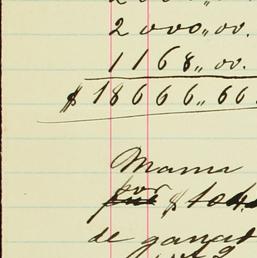 2000,,00.
1168,,00.
$18666,,66
Mama
por
$104.
de ganad